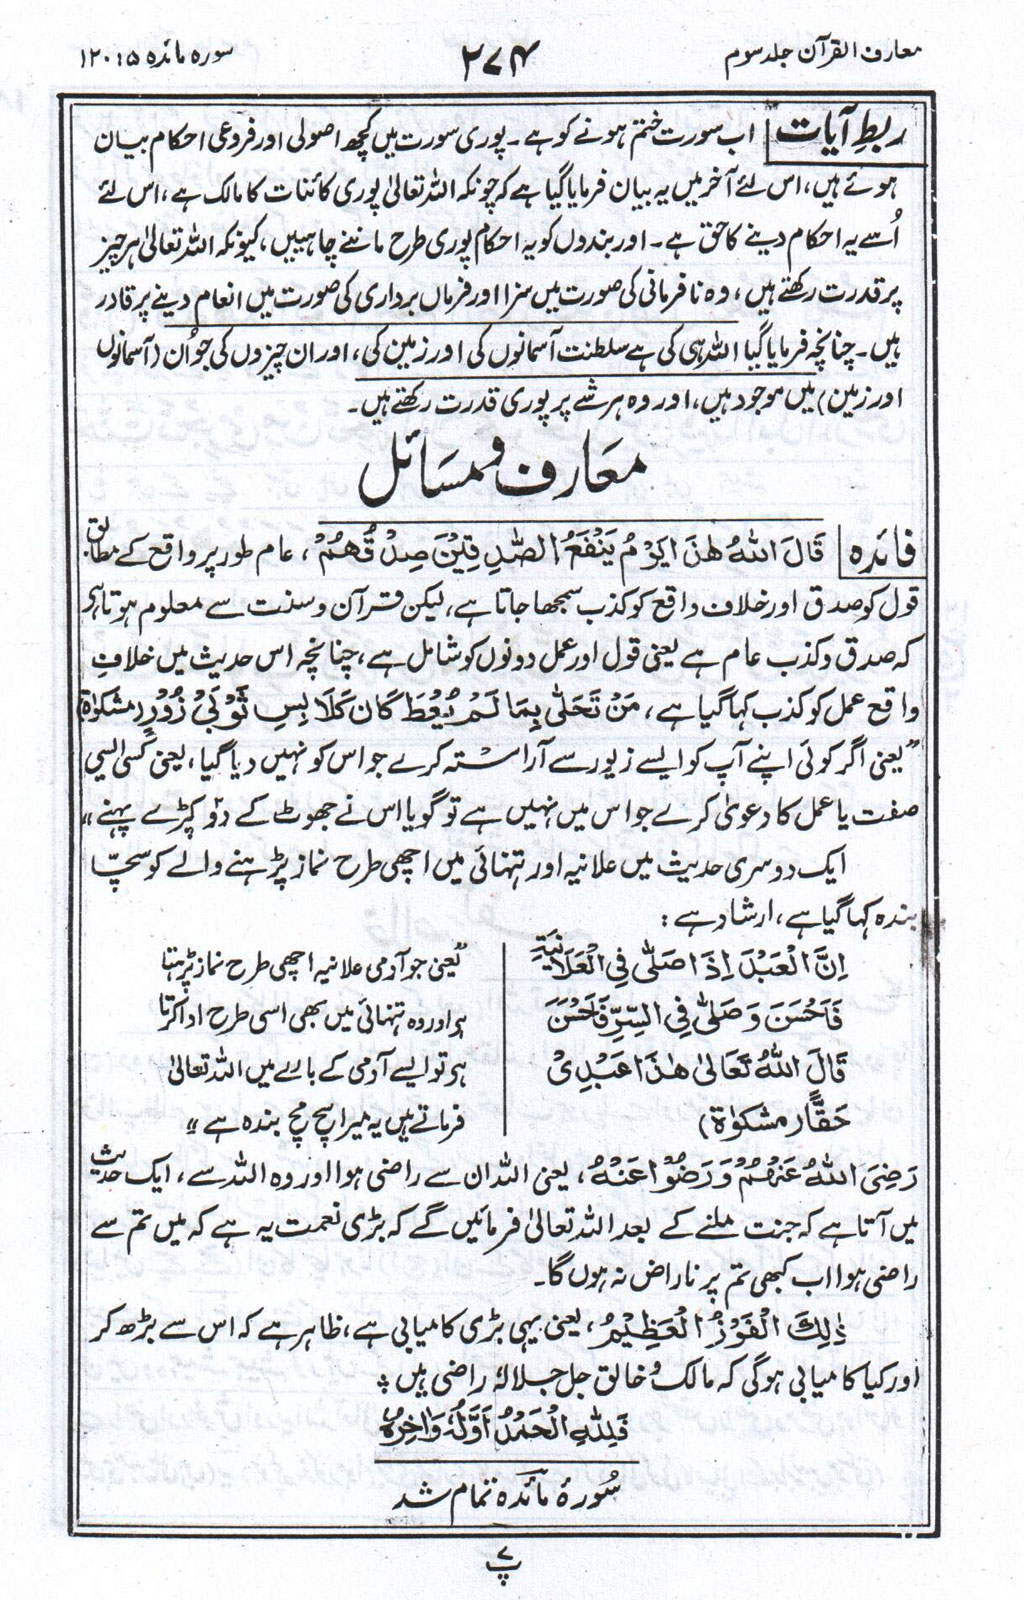 معارف القرآن جلد سوم
۲۷۴
سورہ مائدہ ۵: ۱۲۰
ربطِ آیات اب سورت ختم ہونے کو ہے۔ پوری سورت میں کچھ اصولی اور فروعی احکام بیان
ہوئے ہیں، اس لئے آخر میں یہ بیان فرمایا گیا ہے کہ چونکہ اللہ تعالیٰ پوری کائنات کا مالک ہے، اس لئے
اُسے یہ احکام دینے کا حق ہے۔ اور بندوں کو یہ احکام پوری طرح ماننے چاہییں، کیونکہ اللہ تعالیٰ ہر چیز
پر قدرت رکھتے ہیں، وہ نافرمانی کی صورت میں سزا اور فرماں برداری کی صورت میں انعام دینے پر قادر
ہیں۔ چنانچہ فرمایا گیا اللہ ہی کی ہے سلطنت آسمانوں کی اور زمین کی، اور ان چیزوں کی جو اُن (آسمانوں
اور زمین) میں موجود ہیں، اور وہ ہر شے پر پوری قدرت رکھتے ہیں۔
معارف و مسائل
فائدہ قَالَ اللهُ هٰذَا يَوْمُ يَنْفَعُ الصّٰدِقِيْنَ صِدْقُهُمْ، عام طور پر واقع کے مطابق
قول کو صدق اور خلاف واقع کو کذب سمجھا جاتا ہے، لیکن قرآن و سنت سے معلوم ہوتا ہے
کہ صدق و کذب عام ہے یعنی قول اور عمل دونوں کو شامل ہے، چنانچہ اس حدیث میں خلافِ
واقع عمل کو کذب کہا گیا ہے، مَنْ تَحَلّٰى بِمَا لَمْ يُعْطَ كَانَ كَلَابِسِ ثَوْبَيْ زُوْرٍ (مشکوٰۃ)
”یعنی اگر کوئی اپنے آپ کو ایسے زیور سے آراستہ کرے جو اس کو نہیں دیا گیا، یعنی کسی ایسی
صفت یا عمل کا دعویٰ کرے جو اس میں نہیں ہے تو گویا اس نے جھوٹ کے دو کپڑے پہنے“
ایک دوسری حدیث میں علانیہ اور تنہائی میں اچھی طرح نماز پڑھنے والے کو سچّا
بندہ کہا گیا ہے، ارشاد ہے:
اِنَّ الْعَبْدَ اِذَا صَلّٰى فِي الْعَلَانِيَةِ
فَاَحْسَنَ وَصَلّٰى فِي السِّرِّ فَاَحْسَنَ
قَالَ اللهُ تَعَالٰى هٰذَا عَبْدِيْ
حَقًّا (مشکوٰۃ)
”یعنی جو آدمی علانیہ اچھی طرح نماز پڑھتا
ہے اور وہ تنہائی میں بھی اسی طرح ادا کرتا
ہے تو ایسے آدمی کے بارے میں اللہ تعالیٰ
فرماتے ہیں یہ میرا سچ مچ بندہ ہے“
رَضِيَ اللهُ عَنْهُمْ وَرَضُوْا عَنْهُ، یعنی اللہ ان سے راضی ہوا اور وہ اللہ سے، ایک حدیث
میں آتا ہے کہ جنت ملنے کے بعد اللہ تعالیٰ فرمائیں گے کہ بڑی نعمت یہ ہے کہ میں تم سے
راضی ہوا اب کبھی تم پر ناراض نہ ہوں گا۔
ذٰلِكَ الْفَوْزُ الْعَظِيْمُ، یعنی یہی بڑی کامیابی ہے، ظاہر ہے کہ اس سے بڑھ کر
اور کیا کامیابی ہوگی کہ مالک و خالق جل جلالہٗ راضی ہیں ؛
فَلِلّٰهِ الْحَمْدُ اَوَّلُهٗ وَاٰخِرُهٗ
سُورۂ مائدہ تمام شد
پ۷